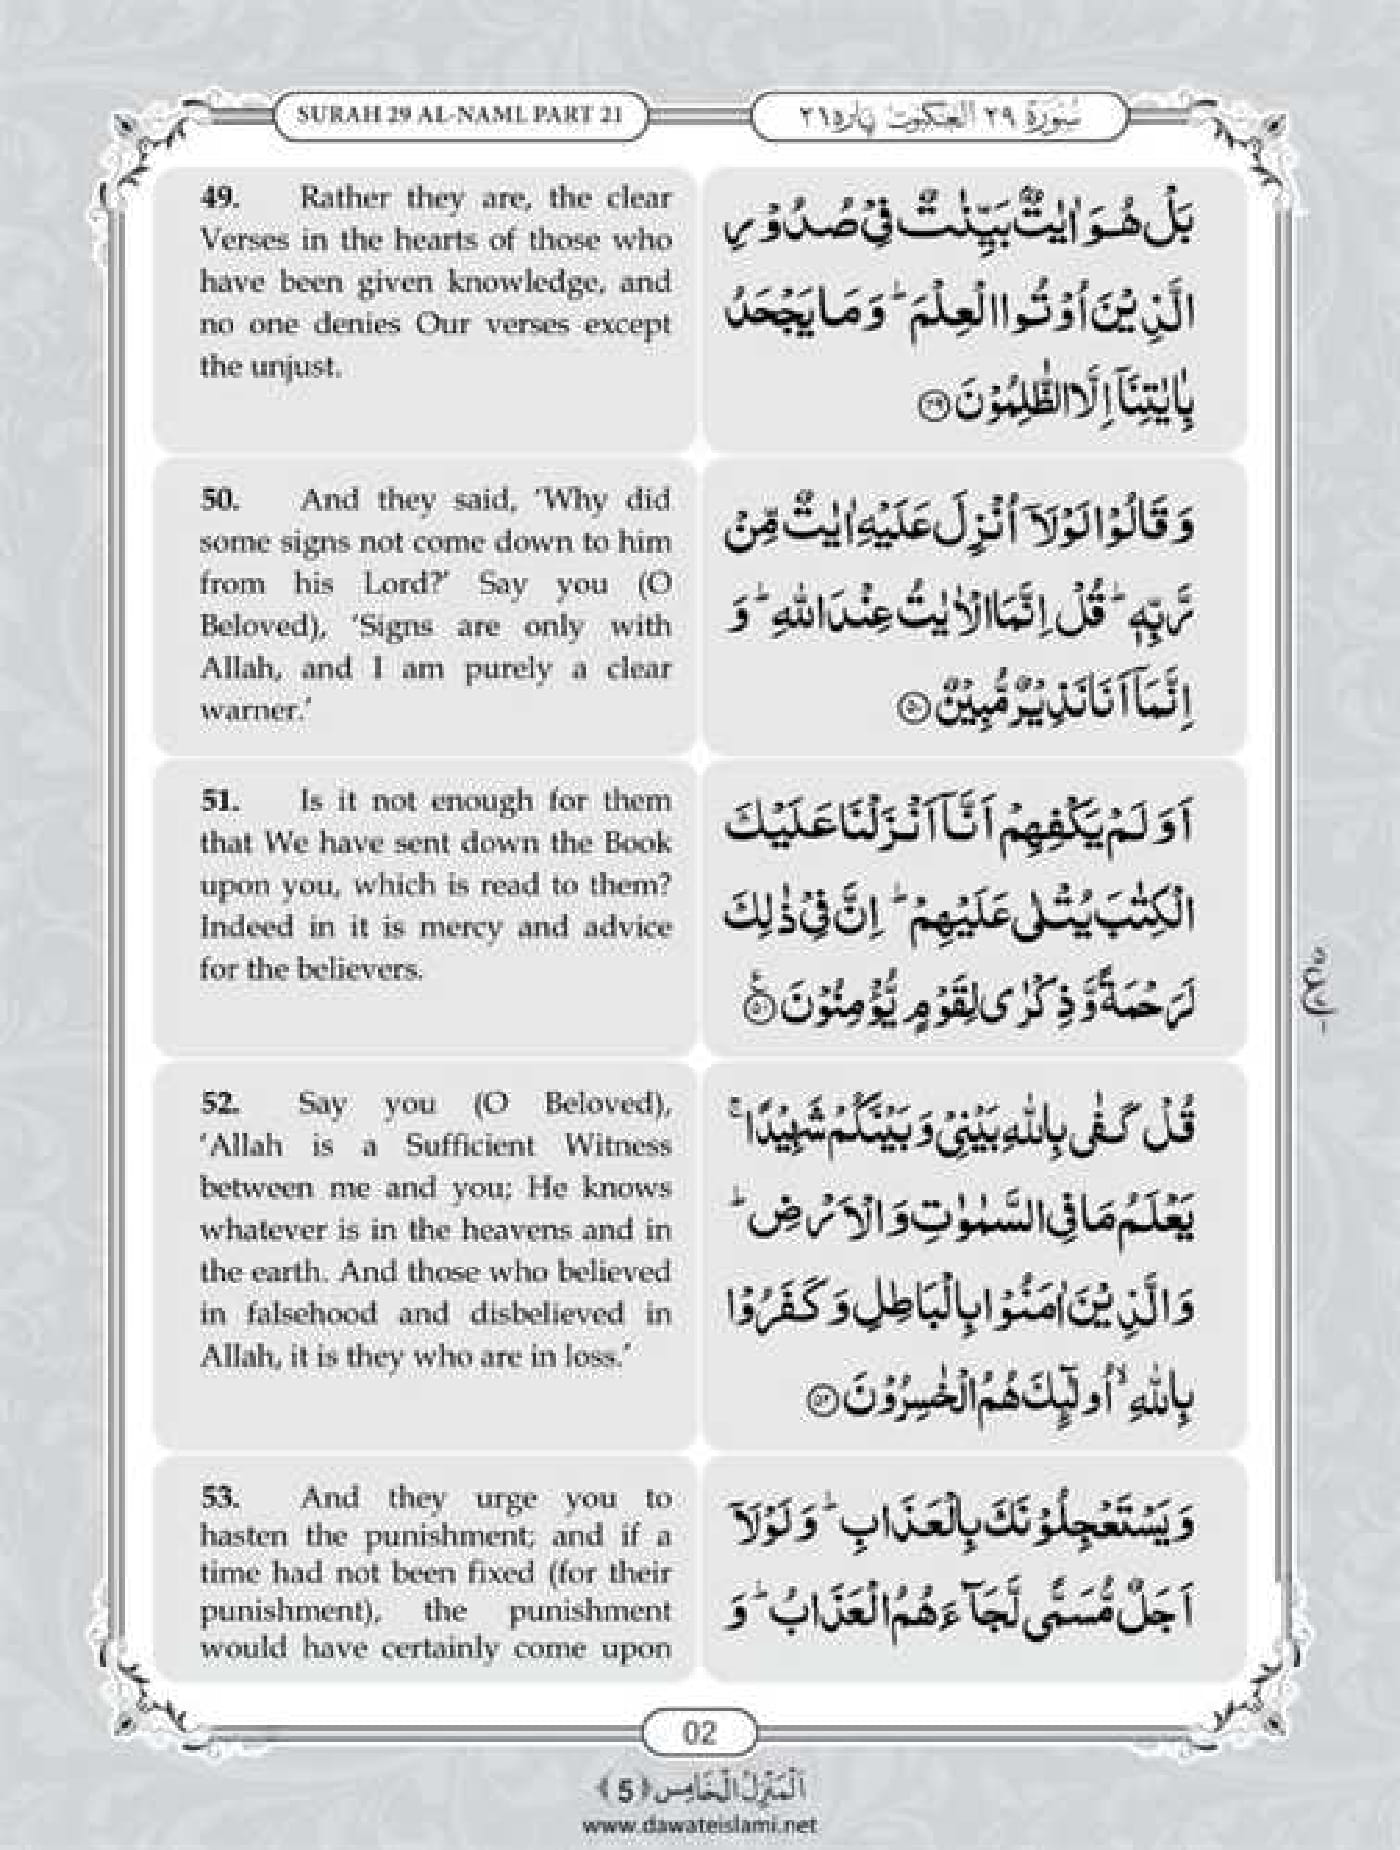 SURAH 29 AL-NAML PART 21
سُوْرَةُ ٢٩ الْعَنْكَبُوْت پَاره ٢١
49. Rather they are, the clear
Verses in the hearts of those who
have been given knowledge, and
no one denies Our verses except
the unjust.
بَلْ هُوَ اٰيٰتٌۢ بَيِّنٰتٌ فِيْ صُدُوْرِ
الَّذِيْنَ اُوْتُوا الْعِلْمَ ؕ وَمَا يَجْحَدُ
بِاٰيٰتِنَاۤ اِلَّا الظّٰلِمُوْنَ ﴿۴۹﴾
50. And they said, ‘Why did
some signs not come down to him
from his Lord?’ Say you (O
Beloved), ‘Signs are only with
Allah, and I am purely a clear
warner.’
وَقَالُوْا لَوْلَاۤ اُنْزِلَ عَلَيْهِ اٰيٰتٌ مِّنْ
رَّبِّهٖ ؕ قُلْ اِنَّمَا الْاٰيٰتُ عِنْدَ اللّٰهِ ؕ وَ
اِنَّمَاۤ اَنَا نَذِيْرٌ مُّبِيْنٌ ﴿۵۰﴾
51. Is it not enough for them
that We have sent down the Book
upon you, which is read to them?
Indeed in it is mercy and advice
for the believers.
اَوَلَمْ يَكْفِهِمْ اَنَّاۤ اَنْزَلْنَا عَلَيْكَ
الْكِتٰبَ يُتْلٰى عَلَيْهِمْ ؕ اِنَّ فِيْ ذٰلِكَ
لَرَحْمَةً وَّذِكْرٰى لِقَوْمٍ يُّؤْمِنُوْنَ ﴿۵۱﴾
52. Say you (O Beloved),
‘Allah is a Sufficient Witness
between me and you; He knows
whatever is in the heavens and in
the earth. And those who believed
in falsehood and disbelieved in
Allah, it is they who are in loss.’
قُلْ كَفٰى بِاللّٰهِ بَيْنِيْ وَبَيْنَكُمْ شَهِيْدًا ۚ
يَعْلَمُ مَا فِي السَّمٰوٰتِ وَالْاَرْضِ ؕ
وَالَّذِيْنَ اٰمَنُوْا بِالْبَاطِلِ وَكَفَرُوْا
بِاللّٰهِ ۙ اُولٰٓئِكَ هُمُ الْخٰسِرُوْنَ ﴿۵۲﴾
53. And they urge you to
hasten the punishment; and if a
time had not been fixed (for their
punishment), the punishment
would have certainly come upon
وَيَسْتَعْجِلُوْنَكَ بِالْعَذَابِ ؕ وَلَوْلَاۤ
اَجَلٌ مُّسَمًّى لَّجَآءَهُمُ الْعَذَابُ ؕ وَ
02
اَلْمَنْزِلُ الْخَامِس ﴿5﴾
www.dawateislami.net